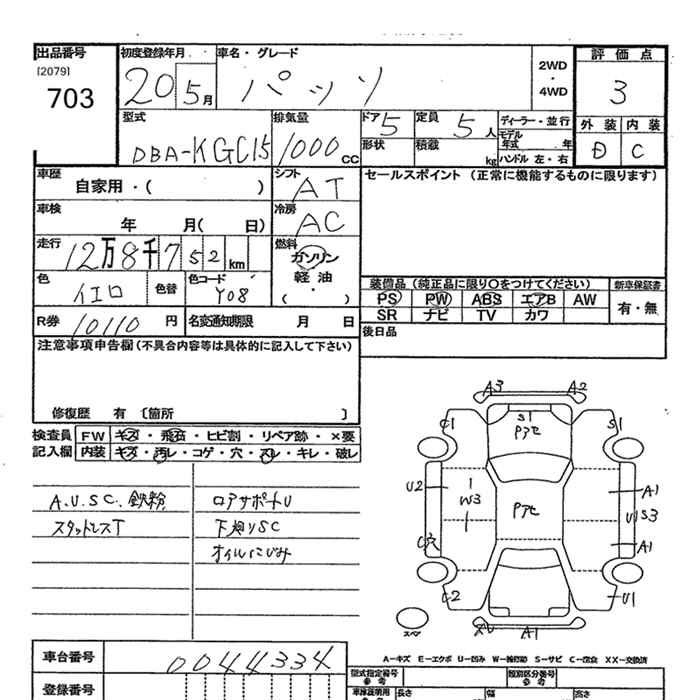 出品番号 初度登録年月 車名・グレード 2WD・4WD 評価点
[2079]
703 20 5月 パッソ 3
型式 排気量 ドア 5 定員 5人 ディーラー・並行 外装 内装
DBA-KGC15 1000cc 形状 積載 kg モデル年式 年 D C
ハンドル 左・右
車歴 自家用・( ) シフト AT セールスポイント (正常に機能するものに限ります)
車検 年 月( 日) 冷房 AC
走行 12万8千752km 燃料 ガソリン
軽油
( ・ )
色 イエロ 色替 色コード Y08 装備品 (純正品に限り○をつけてください) 新車保証書
PS PW ABS エアB AW 有・無
R券 10110円 名変通知期限 月 日 SR ナビ TV カワ
注意事項申告欄(不具合内容等は具体的に記入して下さい) 後日品
修復歴 有 〔箇所 〕
検査員 FW キズ・飛石・ヒビ割・リペア跡・×要
記入欄 内装 キズ・汚レ・コゲ・穴・スレ・キレ・破レ
A.U.SC.鉄粉 ロアサポートU
スタットレスT 下廻りSC
オイルにじみ
A3 A2
C1 S1 S1
Pアセ
U2 W3 Pアセ A1
U1S3
C穴 A1
C2 U1
スペア A1
A-キズ E-エクボ U-凹み W-補修跡 S-サビ C-腐食 XX-交換済
車台番号 0044334 型式指定番号 類別区分番号
参考 参考
登録番号 車庫証明用 長さ 幅 高さ